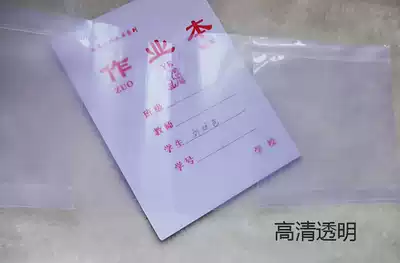 作业本
ZUO YE
班级
教师
学生
学号
学校
高清透明